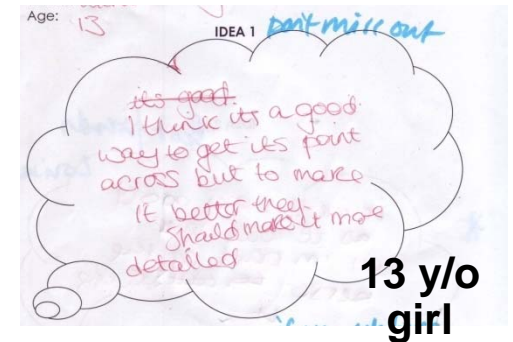 Age:
13
IDEA 1 Don't miss out
its good.
I think its a good
way to get its point
across but to make
it better they
should make it more
detailed
13 y/o
girl